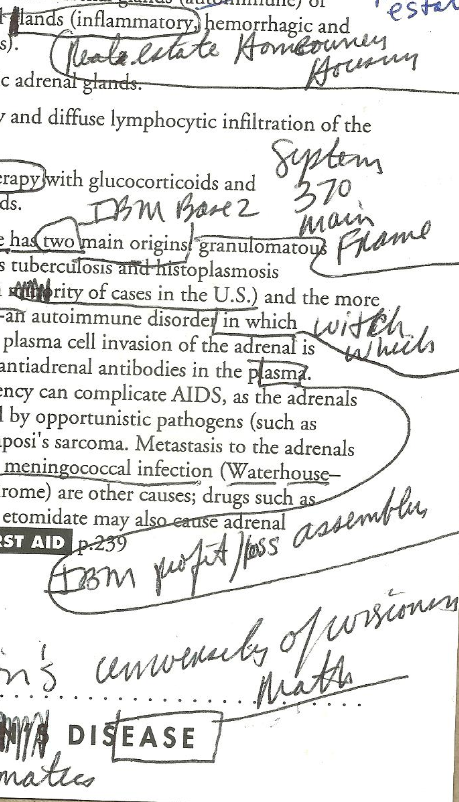 estat
lands (inflammatory, hemorrhagic and
s).
Real estate Homeowners
Housing
c adrenal glands.
y and diffuse lymphocytic infiltration of the
System
370
Main
Frame
erapy with glucocorticoids and
ds.
IBM Base 2
e has two main origins: granulomatous
s tuberculosis and histoplasmosis
ority of cases in the U.S.) and the more
-an autoimmune disorder in which
witch
which
plasma cell invasion of the adrenal is
antiadrenal antibodies in the plasma.
ency can complicate AIDS, as the adrenals
d by opportunistic pathogens (such as
aposi's sarcoma. Metastasis to the adrenals
meningococcal infection (Waterhouse–
rome) are other causes; drugs such as
etomidate may also cause adrenal
RST AID p.239
IBM profit/loss assembler
n's University of Wisconsin
Math
DISEASE
matics